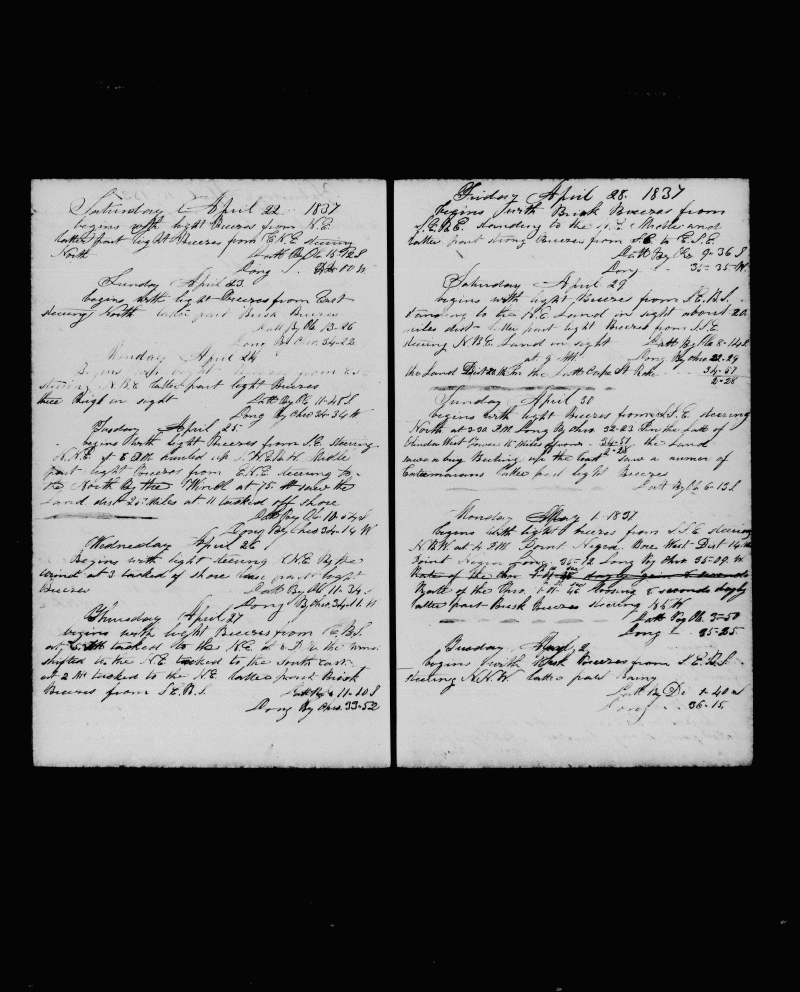 Saturday April 22 1837
begins with light Breezes from N.E.
latter part light Breezes from E.N.E steering
North Latt By Ob 15-12 S
Long
Sunday April 23
begins with light Breezes from East
steering North latter part Brisk Breezes
Latt By Ob 13-26
Long By Chro. 34-22
Monday April 24
Begins with light Breezes from
steering N.B.E latter part light Breezes
three Brigs in sight Latt By Ob 11-48 S
Long By Chro 34-34 W
Tusday April 25
begins with light Breezes from S.E. steering
N.N.E. at 8 PM hauled up
part light Breezes from E.N.E. steering to
the North By the Wind at 75 saw the
Land dist 25 Miles at 11 tacked off shore
Latt By Ob
Long By Chro 34-14 W
Wednesday April 26
Begins with light steering N.E By the
wind at 3 tacked of shore light
Breezes Latt By Ob 11-34
Long By Chro. 34-11. W
Thursday April 27
begins with light Breezes from E.B.S.
at tacked to the N.E. at 8 the wind
shifted to the N.E. tacked to the South East
at 2 AM tacked to the N.E. latter part Brisk
Breezes from S.E.B.S. 11-10 S
Long By Chro. 33-52
Friday April 28. 1837
begins with Brisk Breezes from
S.E.B.E. standing to the Middle and
latter part strong Breezes from S.E. to E.S.E.
Latt By Ob 9-36 S
Long 35-35 W.
Saturday April 29
begins with light Breezes from S.E.B.S.
standing to the N.E Land in sight about 20
miles dist latter part light Breezes from S.S.E
steering N.B.E. Land in sight Latt By Ob 8-14 S
at 9 AM Long By Chro
the Land Dist for the Latt Cape St Roke 34-57
2-28
Sunday April 30
begins with light Breezes from S.S.E. steering
North at 3.30 PM Long By Chro 32-23 In the latt of
West Tower 15 Miles of shore 34-51 the Land
2-28
saw a brig Beeting up the Coast saw a numer of
Catamarans latter part light Breezes
Latt By Ob 6-13 S
Monday May 1. 1837
begins with light breezes from S.S.E. steering
N.B.W. at 4 P.M Point Negra. Bore West Dist 14 Mi
Point Negra Long 35-12 Long By Chro 35-09. W
Rate of the Chro dayly gain 8 seconds
Rate of the Chro. loosing 8 seconds dayly
latter part Brisk Breezes steering W
Latt By Ob. 3-50
Long 35-25
Tusday May 2
begins with Brisk Breezes from S.E.B.S.
steering N.N.W. latter part rainy
Latt By D.
Long 36-15